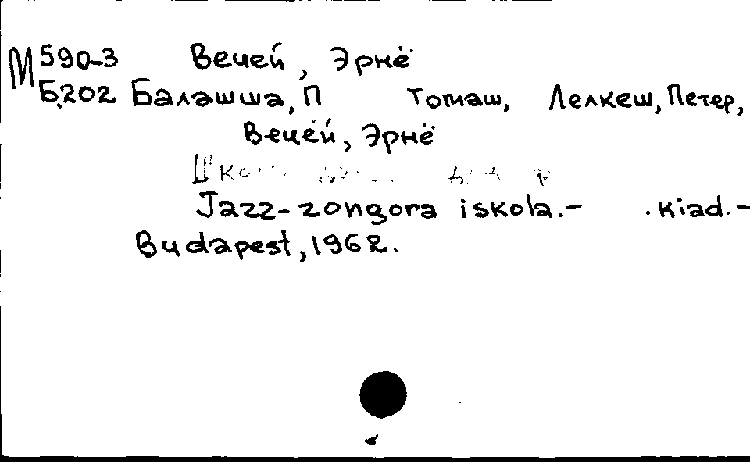 М 590-3 Вечей, Эрнё
Б.202 Балашша, П Томаш, Лелкеш, Петер,
Вечей, Эрнё
Jazz-zongora iskola.- . kiad.-
Budapest, 1962.